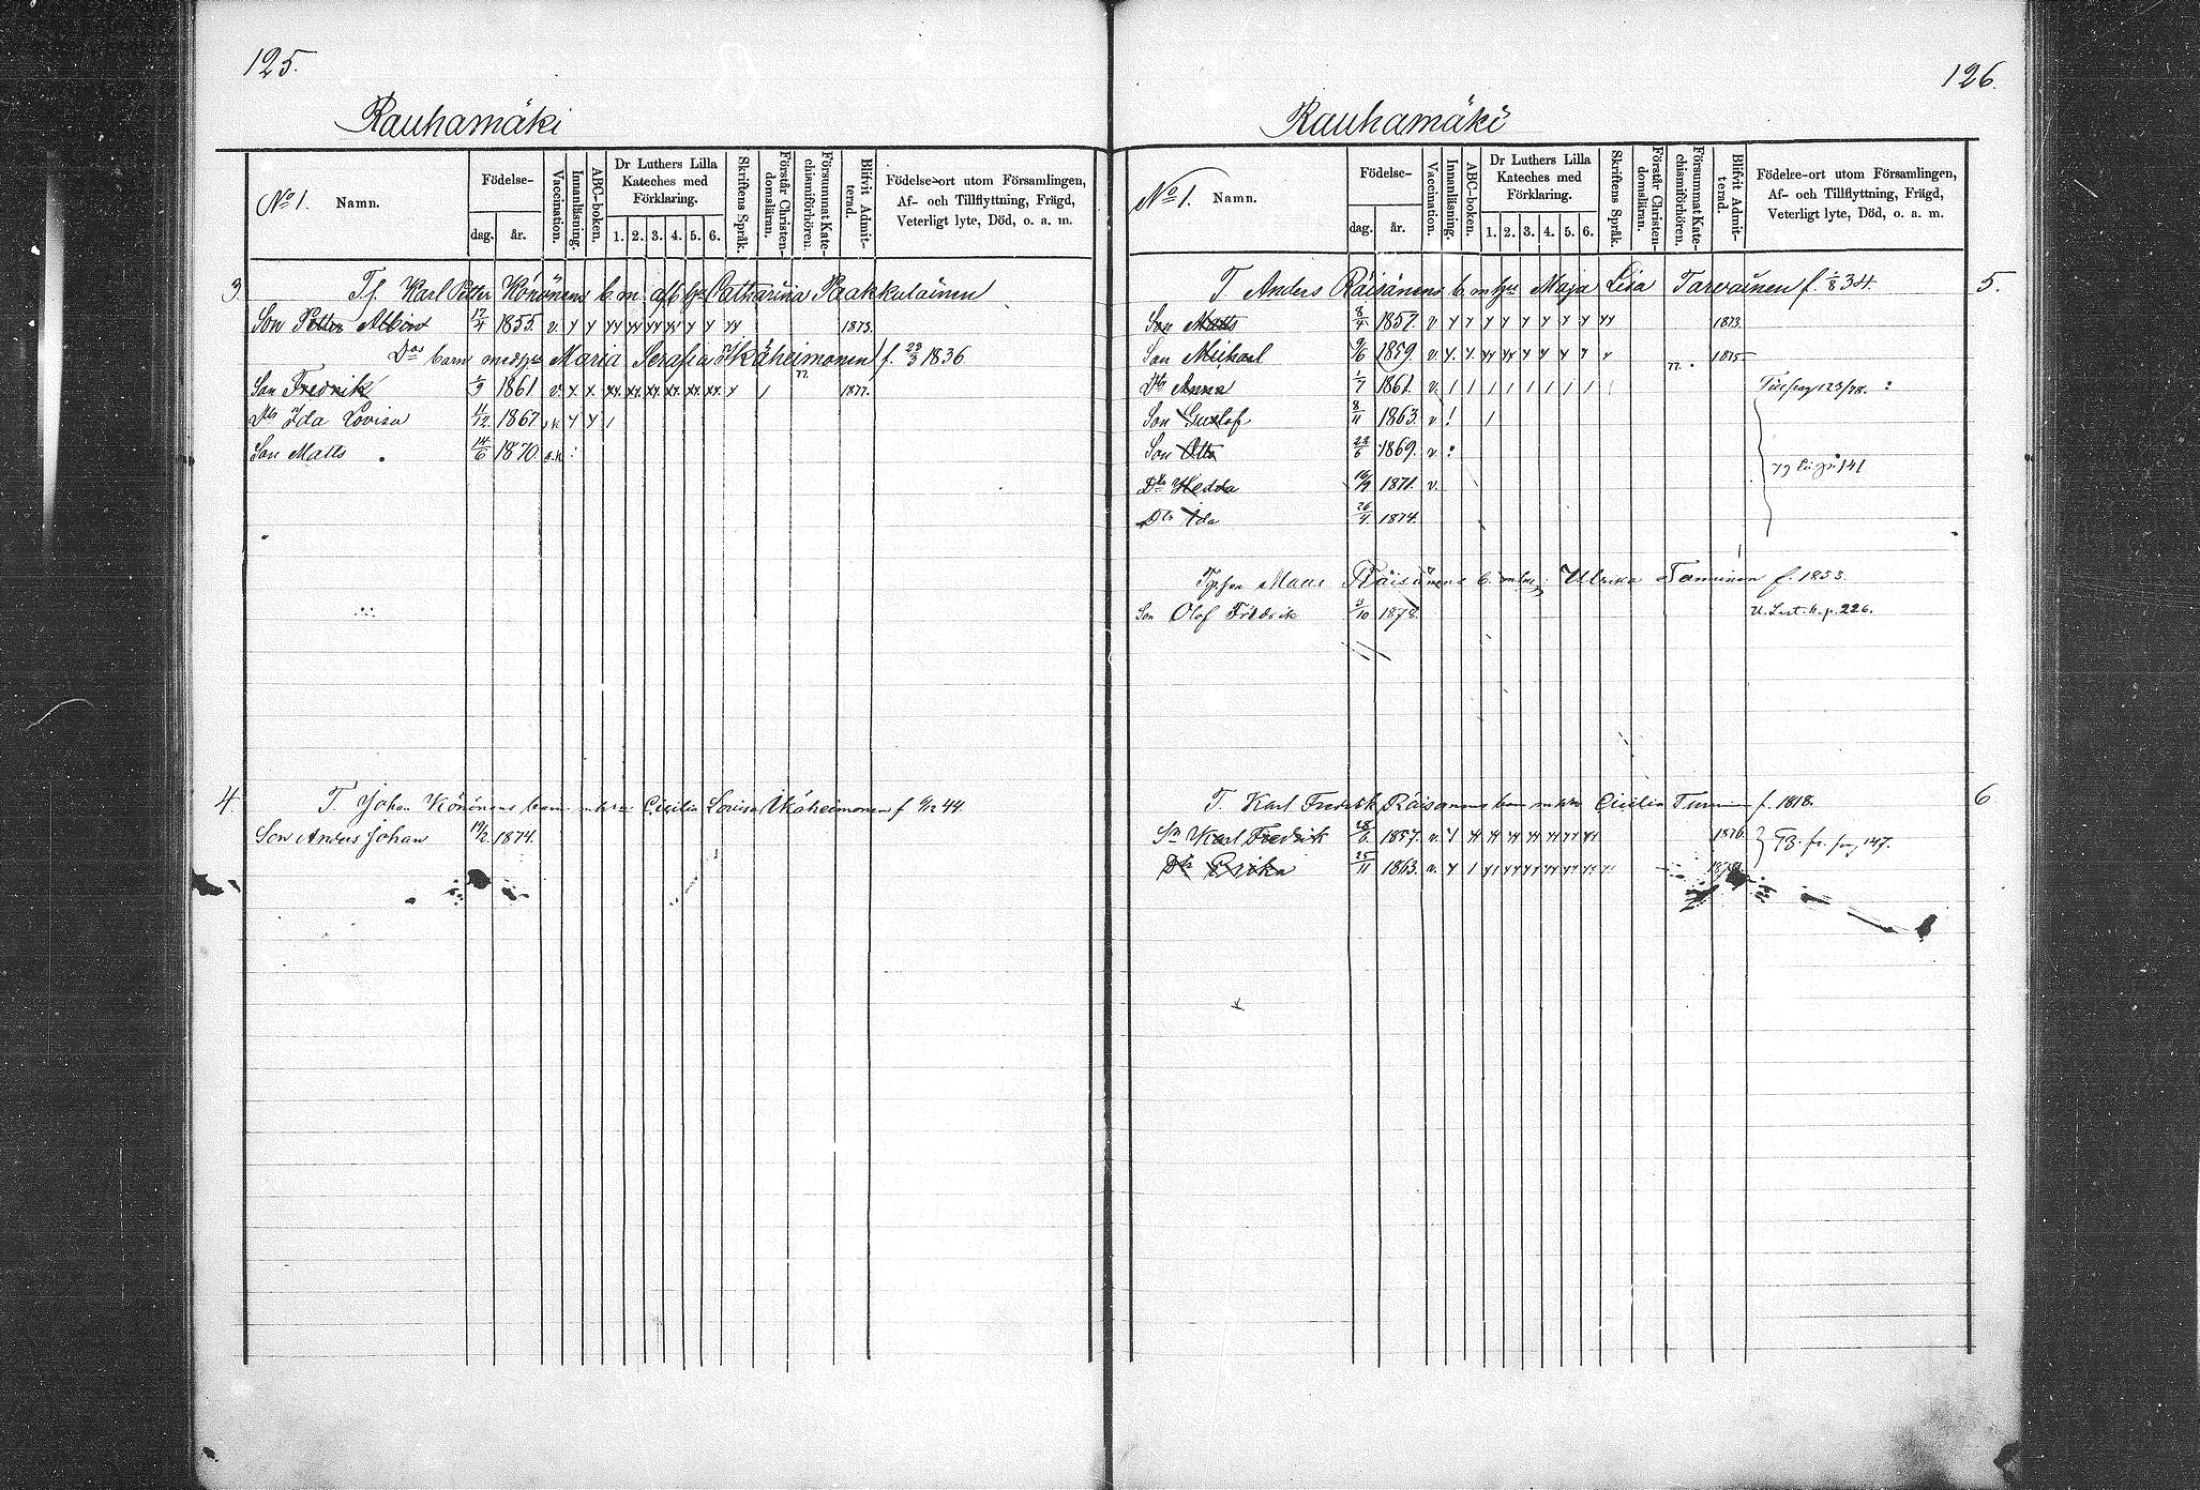 125.
Rauhamäki
No 1. Namn.
Födelse-
dag. år.
Vaccination.
Innanläsning.
ABC-boken.
Dr Luthers Lilla Kateches med Förklaring.
1. 2. 3. 4. 5. 6.
Skriftens Språk.
Förstår Christendomsläran.
Försummat Katechismiförhören.
Blifvit Admitterad.
Födelse-ort utom Församlingen,
Af- och Tillflyttning, Frägd,
Veterligt lyte, Död, o. a. m.
3. T.f. Karl Petter Könönens b. m. afl. hu Catharina Paakkulainen
Son Petter Albin 17/4 1855. v. 1873.
Dos barn med hu Maria Serafia Ikäheimonen f. 23/3 1836
Son Fredrik 1/9 1861 v. 1877.
Dtr Ida Lovisa 11/12 1867 v.k
Son Matts 14/6 1870. s.k
4. T. Johan Könönens barn m hu Cecilia Lovisa Ikäheimonen f 9/12 44.
Son Anders Johan 19/2 1874.
126.
Rauhamäki
No 1. Namn.
Födelse-
dag. år.
Vaccination.
Innanläsning.
ABC-boken.
Dr Luthers Lilla Kateches med Förklaring.
1. 2. 3. 4. 5. 6.
Skriftens Språk.
Förstår Christendomsläran.
Försummat Katechismiförhören.
Blifvit Admitterad.
Födelse-ort utom Församlingen,
Af- och Tillflyttning, Frägd,
Veterligt lyte, Död, o. a. m.
T Anders Räisänens b. m hu Maja Lisa Tarvainen f. 1/8 34. 5.
Son Matts 8/4 1857. v 1873.
Son Michael 9/6 1859. v. 1875
Dtr Anna 1/7 1861. v. 123/78.
Son Gustaf 8/11 1863. v
Son Otto 1869. v.
Dtr Hedda 1871. v. 141
Dtr Ida 26/4 1874.
Räisänens b. Ulrika Tamminen f. 1853.
Son Olof Fredrik 1878. p. 226.
T. Karl Fredrik Räisänens barn m hu Cicilia f. 1818. 6
Sn Karl Fredrik 28/6 1857. v. 1876. 147.
Dtr Erika 25/11 1863. v.